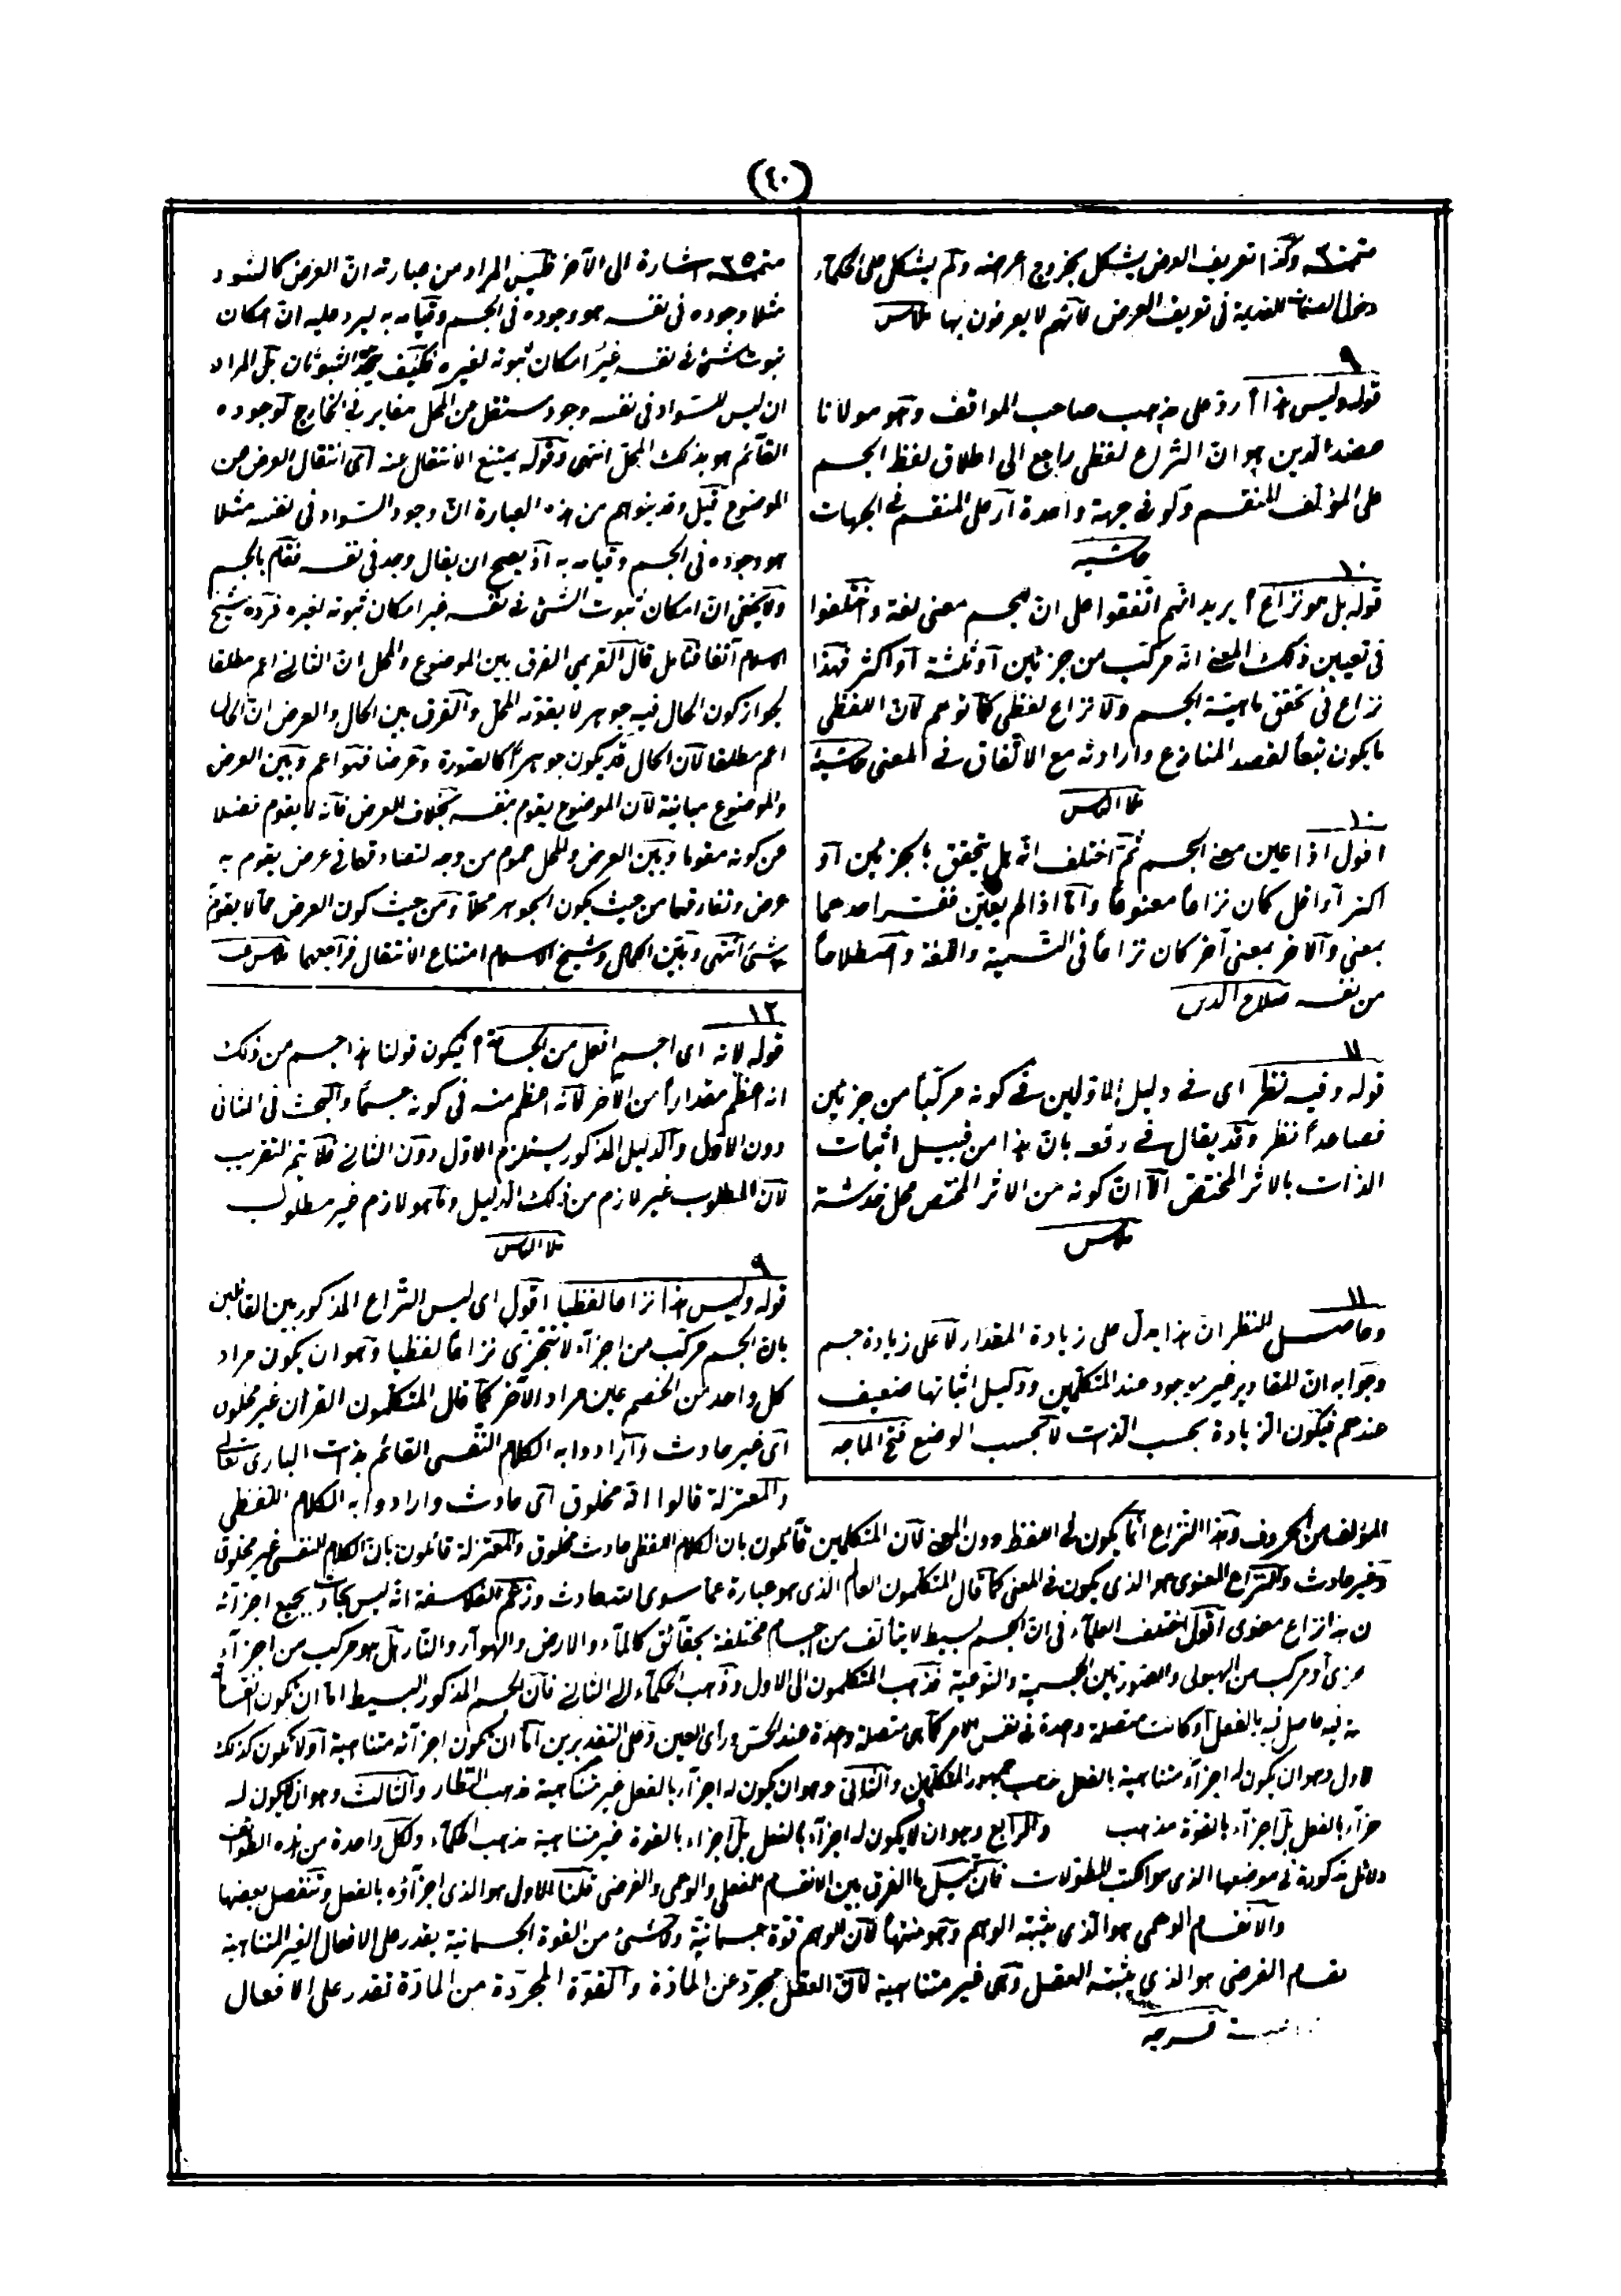 (٤٠)
وكذا تعريف العرض يشكل بخروج اعراضه ولم يشكل على الحكماء
دخول الصفات القديمة فى تعريف العرض لانهم لا يعرفون بها
٩
قوله وليس هذا أ رد على مذهب صاحب المواقف وهو مولانا
عضد الدين هو ان النزاع لفظى راجع الى اطلاق لفظ الجسم
على المؤلف المنقسم ولو فى جهة واحدة او على المنقسم فى الجهات
حاشيه
١٠
قوله بل هو نزاع أ يريد انهم اتفقوا على ان للجسم معنى لغة واختلفوا
فى تعيين ذلك المعنى انه مركب من جزئين او ثلثة او اكثر فهذا
نزاع فى تحقق ماهية الجسم ولا نزاع لفظى كما توهم لان اللفظى
ما يكون تبعا لقصد المنازع وارادته مع الاتفاق فى المعنى حاشية
ملا الياس
١٠
اقول اذا عين معنى الجسم ثم اختلف انه هل يتحقق بالجزئين او
اكثر او اقل كان نزاعا معنويا واما اذا لم يعين ففسر احدهما
بمعنى والآخر بمعنى آخر كان نزاعا فى التسمية واللغة واصطلاحا
من نفسه صلاح الدين
١١
قوله وفيه نظر اى فى دليل الاولين فى كونه مركبا من جزئين
فصاعدا نظر وقد يقال فى دفعه بان هذا من قبيل اثبات
الذات بالاثر المختص الا ان كونه من الاثر المختص محل خدشة
١١
وحاصل النظر ان هذا يدل على زيادة المقدار لا على زيادة جسم
وجوابه ان المقادير غير موجود عند المتكلمين ودليل اثباتها ضعيف
عندهم فيكون الزيادة بحسب الذات لا بحسب الوضع فتح الماجه
اشارة الى الآخر فليس المراد من عبارته ان العرض كالسواد
مثلا وجوده فى نفسه هو وجوده فى الجسم وقيامه به ليرد عليه ان امكان
ثبوت شئ فى نفسه غير امكان ثبوته لغيره فكيف يتحد الثبوتان بل المراد
ان ليس للسواد فى نفسه وجود مستقل عن المحل مغاير فى الخارج لوجوده
القائم هو بذلك المحل انتهى وقوله يمتنع الانتقال عنه اى انتقال العرض عن
الموضوع قيل وقد يتوهم من هذه العبارة ان وجود السواد فى نفسه مثلا
هو وجوده فى الجسم وقيامه به اذ يصح ان يقال وجد فى نفسه فقام بالجسم
ولا يخفى ان امكان ثبوت الشئ فى نفسه غير امكان ثبوته لغيره فرده شيخ
الاسلام آنفا فتأمل قال القريمى الفرق بين الموضوع والمحل ان الثانى اعم مطلقا
لجواز كون الحال فيه جوهر لا يقومه المحل والفرق بين الحال والعرض ان الحال
اعم مطلقا لان الحال قد يكون جوهرا كالصورة وعرضا فهو اعم وبين العرض
والموضوع مباينة لان الموضوع يقوم بنفسه بخلاف العرض فانه لا يقوم فضلا
عن كونه مقوما وبين العرض والمحل عموم من وجه لتصادقهما فى عرض يقوم به
عرض وتفارقهما من حيث يكون الجوهر محلا ومن حيث كون العرض مما لا يقوم
بشئ انتهى وبين الجمال وشيخ الاسلام امتناع الانتقال فراجعهما
١٢
قوله لانه اى اجسم افعل من الجسامة أ فيكون قولنا هذا اجسم من ذلك
انه اعظم مقدارا من الآخر لا انه اعظم منه فى كونه جسما والبحث فى الثانى
دون الاول والدليل المذكور يستلزم الاول دون الثانى فلا يتم التقريب
لان المطلوب غير لازم من ذلك الدليل وما هو لازم غير مطلوب
ملا الياس
٩
قوله وليس هذا نزاعا لفظيا اقول اى ليس النزاع المذكور بين القائلين
بان الجسم مركب من اجزآء لا تتجزى نزاعا لفظيا وهو ان يكون مراد
كل واحد من الخصم عين مراد الآخر كما قال المتكلمون القرآن غير مخلوق
اى غير حادث وارادوا به الكلام النفسى القائم بذات البارى تعالى
والمعتزلة قالوا انه مخلوق اى حادث وارادوا به الكلام اللفظى
المؤلف من الحروف وهذا النزاع انما يكون فى اللفظ دون المعنى لان المتكلمين قائلون بان الكلام اللفظى حادث مخلوق والمعتزلة قائلون بان الكلام النفسى غير مخلوق
وغير حادث والنزاع المعنوى هو الذى يكون فى المعنى كما قال المتكلمون العالم الذى هو عبارة عما سوى الله حادث وزعم الفلاسفة انه ليس بحادث بجميع اجزآئه
ن هذا نزاع معنوى اقول اختلف العلمآء فى ان الجسم بسيط لا يتألف من اجسام مختلفة بحقائق كالمآء والارض والهوآء والنار هل هو مركب من اجزآء
جزى او مركب من الهيولى والصورتين الجسمية والنوعية فذهب المتكلمون الى الاول وذهب الحكمآء الى الثانى فان الجسم المذكور البسيط اما ان يكون انقسا
ته فيه حاصل فيه بالفعل او كانت متصلة واحدة فى نفس الامر كما هى متصلة واحدة عند الحس ورأى العين وعلى التقديرين اما ان يكون اجزآئه متناهية او لا تكون كذلك
لاول وهو ان يكون له اجزآء متناهية بالفعل مذهب جمهور المتكلمين والثانى وهو ان يكون له اجزآء بالفعل غير متناهية مذهب النظار والثالث وهو ان لا يكون له
جزآء بالفعل بل اجزآء بالقوة مذهب والرابع وهو ان لا يكون له اجزآء بالفعل بل اجزاء بالقوة غير متناهية مذهب الحكمآء ولكل واحدة من هذه الطوائف
دلائل مذكورة فى موضعها الذى هو الكتب المطولات فان قيل ما الفرق بين الانقسام الفعلى والوهمى والفرضى قلنا الاول هو الذى اجزآؤه بالفعل وتنفصل بعضها
والانقسام الوهمى هو الذى يثبته الوهم وهو منتها لان للوهم قوة جسمانية ولا شئ من القوة الجسمانية يقدر على الافعال الغير المتناهية
نقسام الفرضى هو الذى يثبته العقل وهى غير متناهية لان العقل مجرد عن المادة والقوة المجردة من المادة تقدر على الافعال